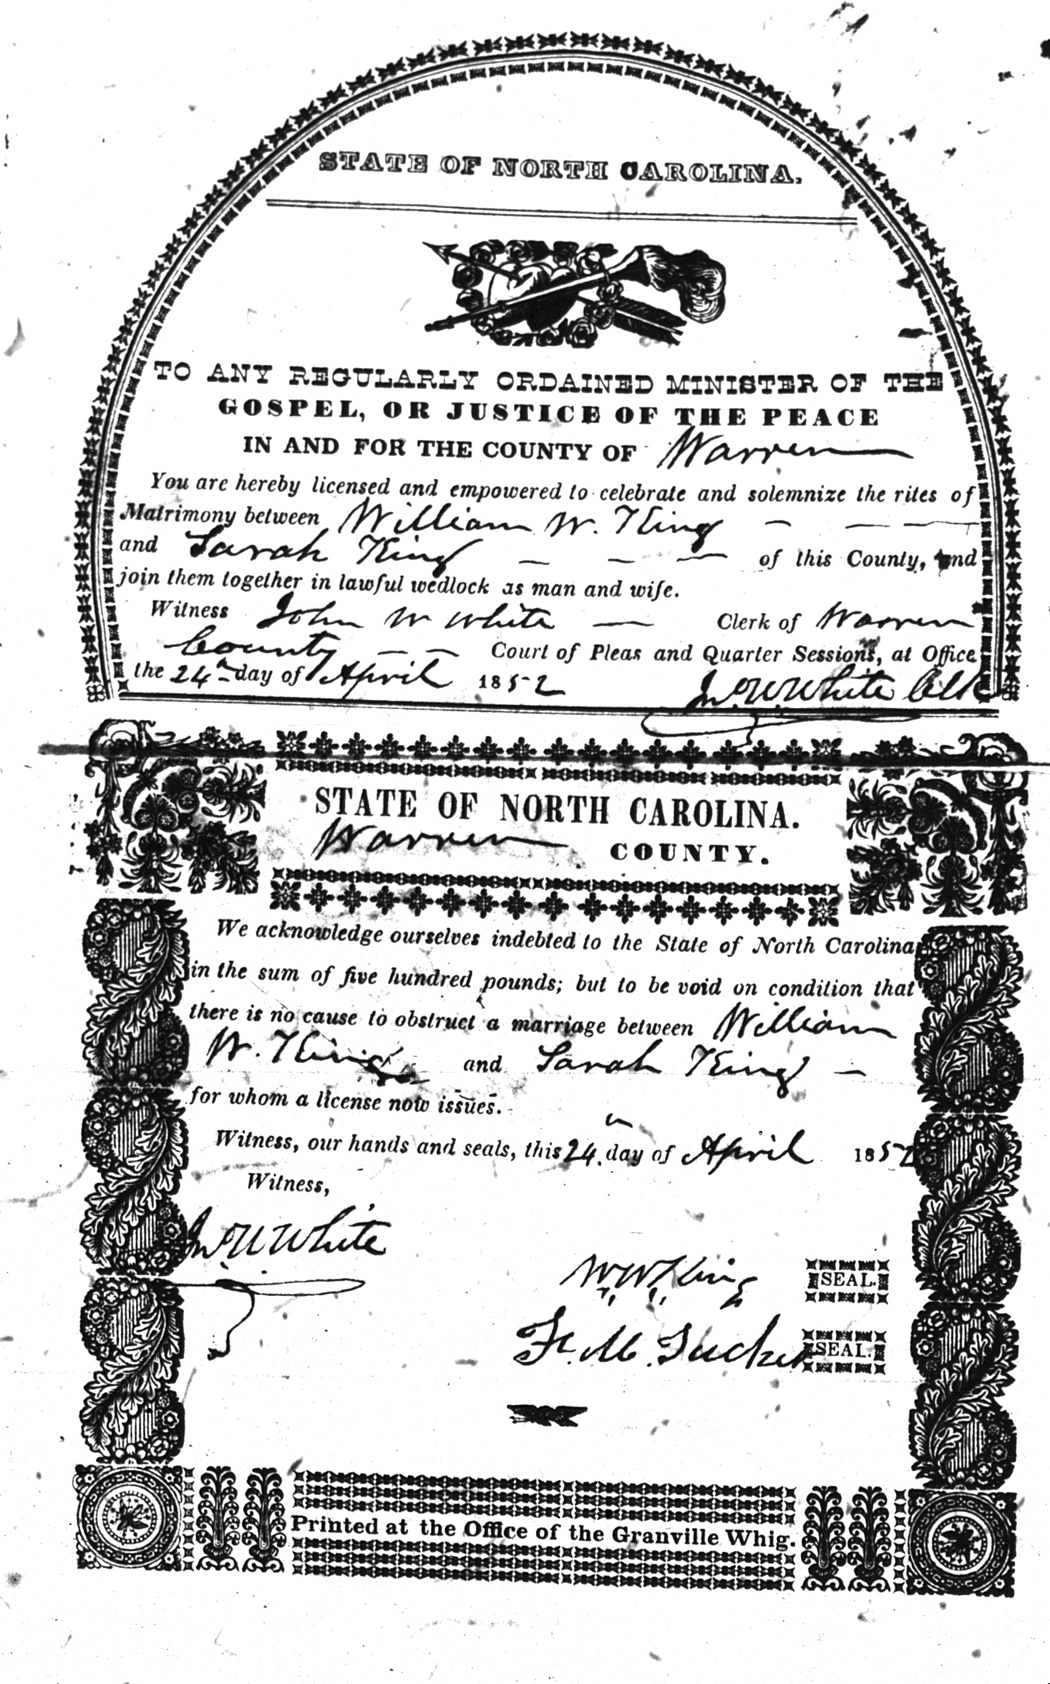 STATE OF NORTH CAROLINA.
TO ANY REGULARLY ORDAINED MINISTER OF THE
GOSPEL, OR JUSTICE OF THE PEACE
IN AND FOR THE COUNTY OF Warren
You are hereby licensed and empowered to celebrate and solemnize the rites of
Matrimony between William W. King — — — —
and Sarah King — — — of this County, and
join them together in lawful wedlock as man and wife.
Witness John W White — Clerk of Warren
County — — Court of Pleas and Quarter Sessions, at Office
the 24th day of April 1852 Jno W White Clk
STATE OF NORTH CAROLINA.
Warren COUNTY.
We acknowledge ourselves indebted to the State of North Carolina
in the sum of five hundred pounds; but to be void on condition that
there is no cause to obstruct a marriage between William
W. King and Sarah King —
for whom a license now issues.
Witness, our hands and seals, this 24th day of April 1852
Witness,
Jno W White
W. W. King SEAL.
F. M. Tucker SEAL.
Printed at the Office of the Granville Whig.